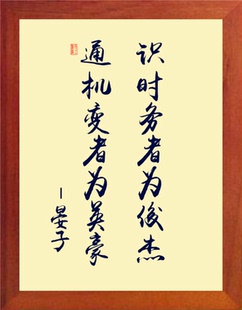 识时务者为俊杰
通机变者为英豪
–晏子